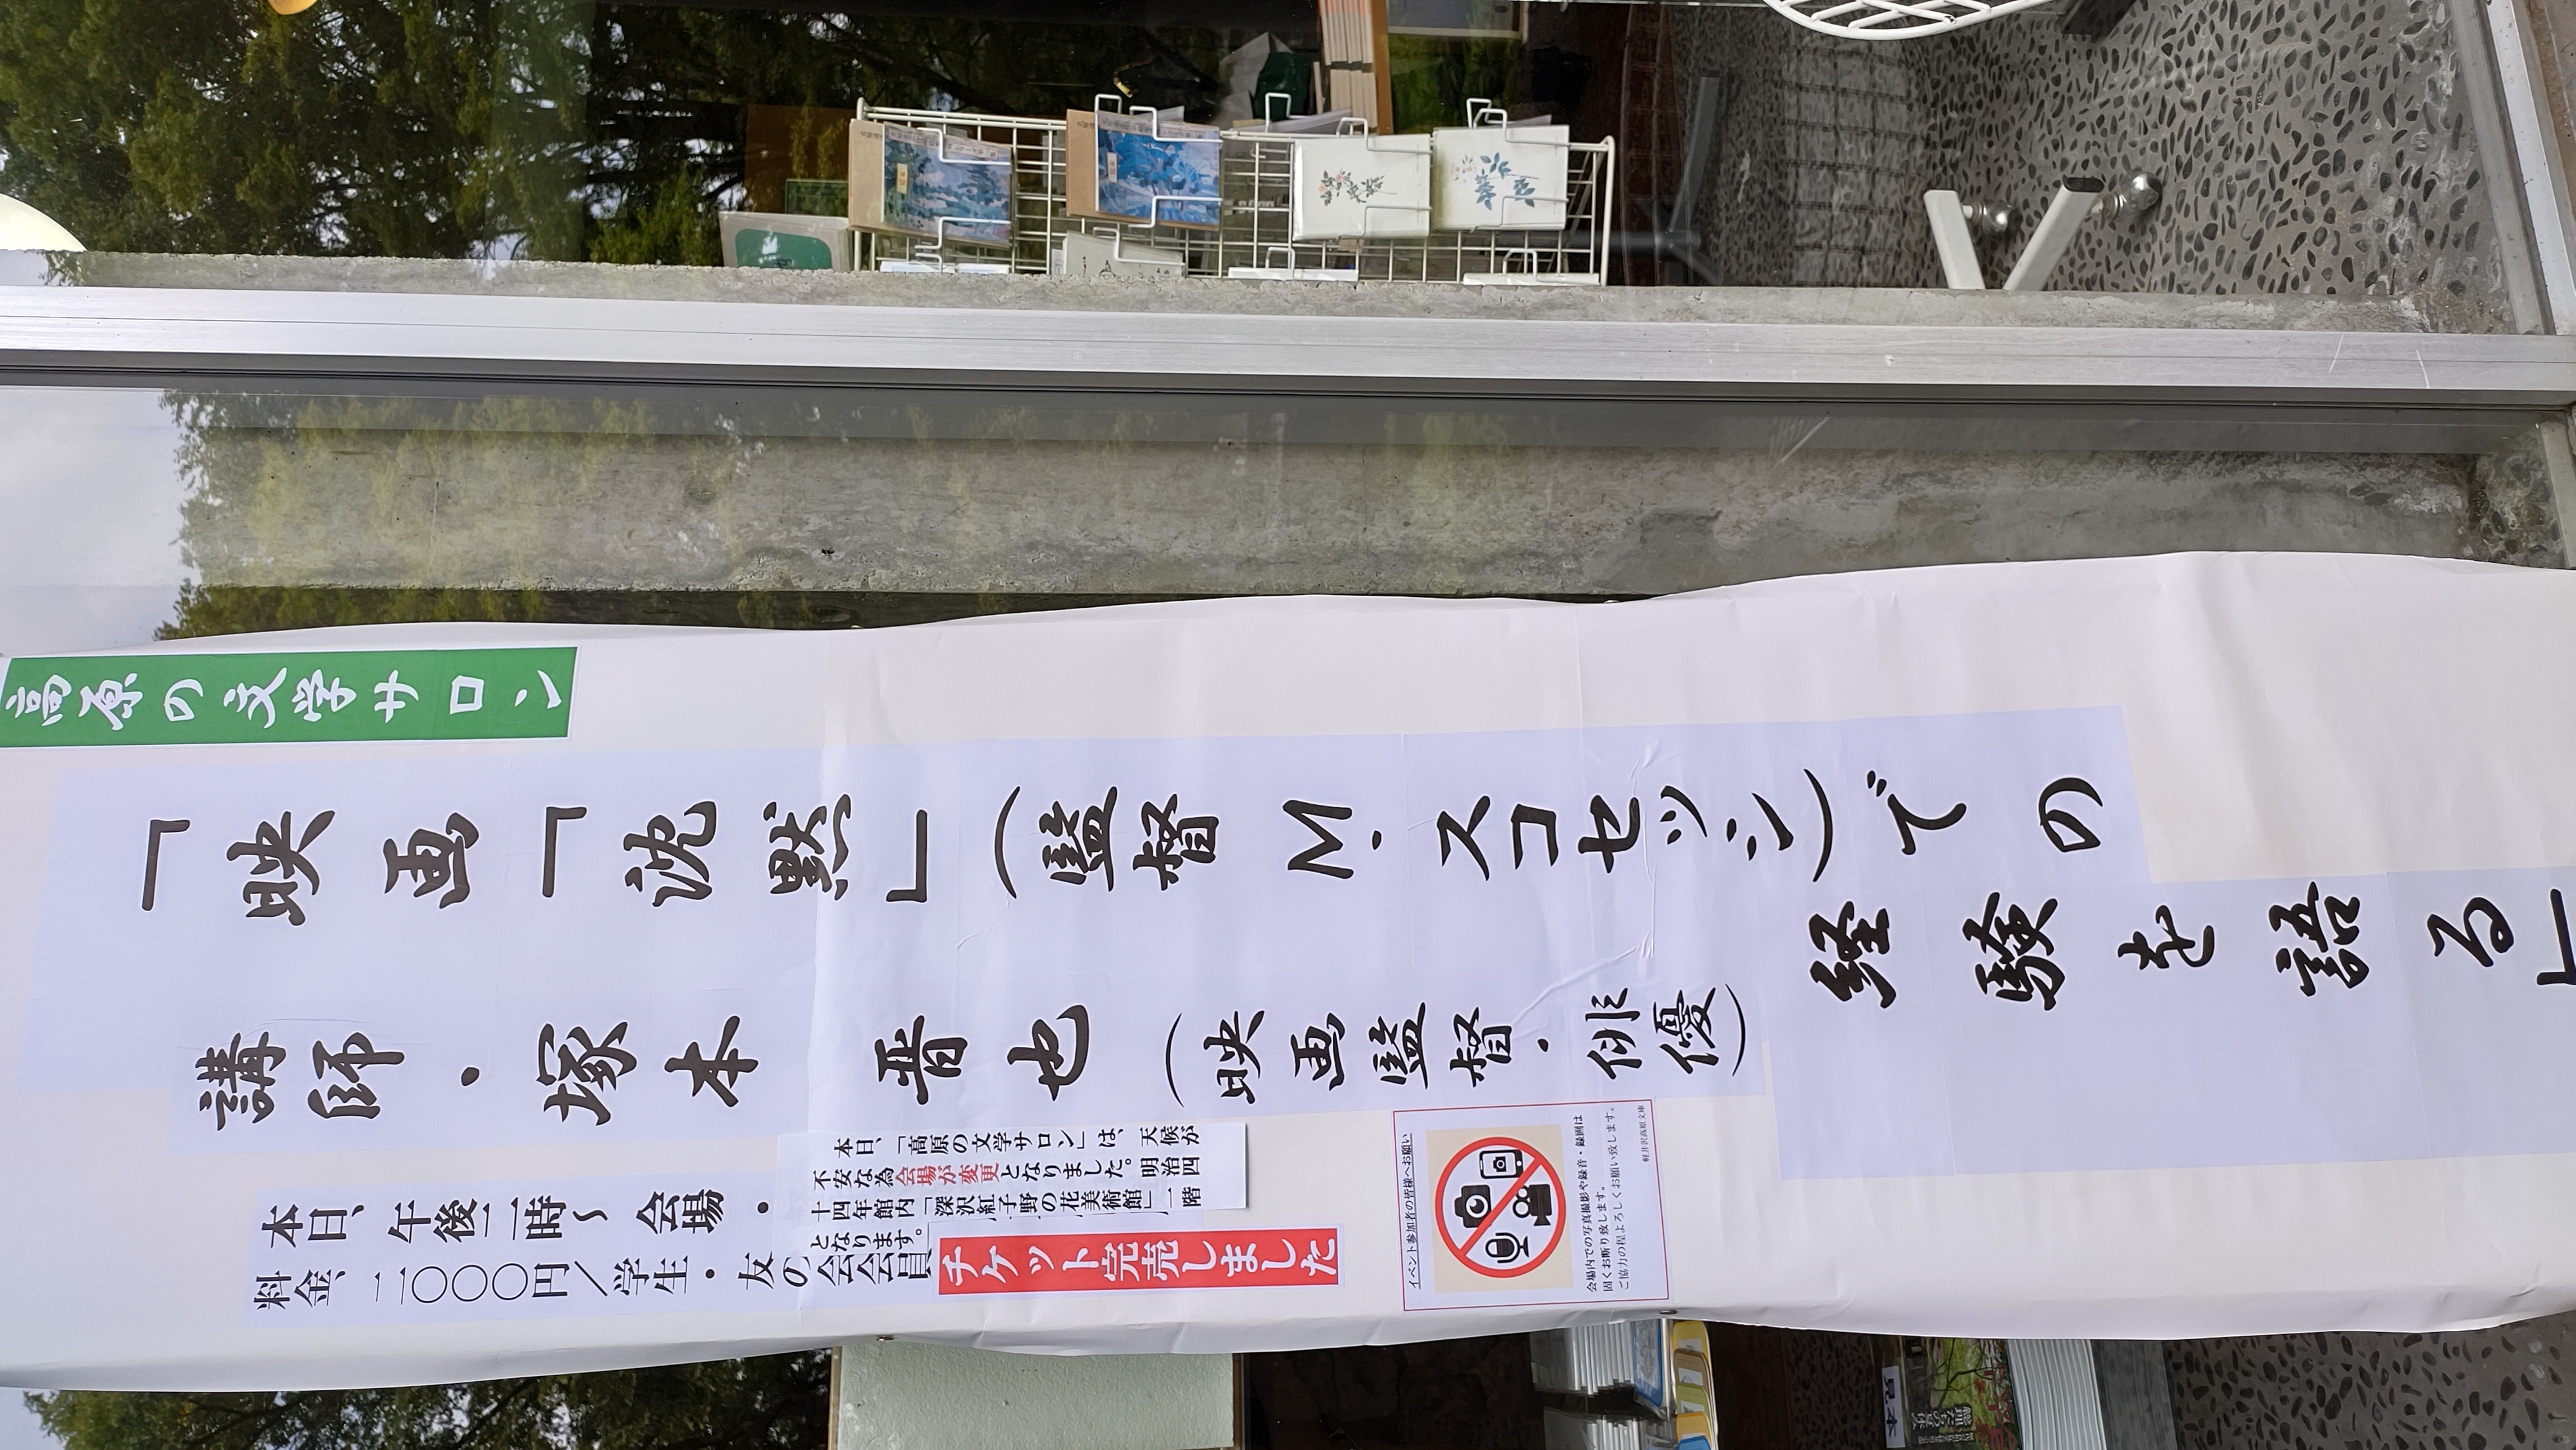 高原の文学サロン
「映画「沈黙」(監督M・スコセッシ)での
経験を語る」
講師・塚本 晋也(映画監督・俳優)
本日、午後二時〜 会場・
料金、二〇〇〇円／学生・友の会会員
本日、「高原の文学サロン」は、天候が
不安な為会場が変更となりました。明治四
十四年館内「深沢紅子野の花美術館」二階
となります。
チケット完売しました
イベント参加者の皆様へお願い
会場内での写真撮影や録音・録画は
固くお断り致します。
ご協力の程よろしくお願い致します。
軽井沢高原文庫
見本